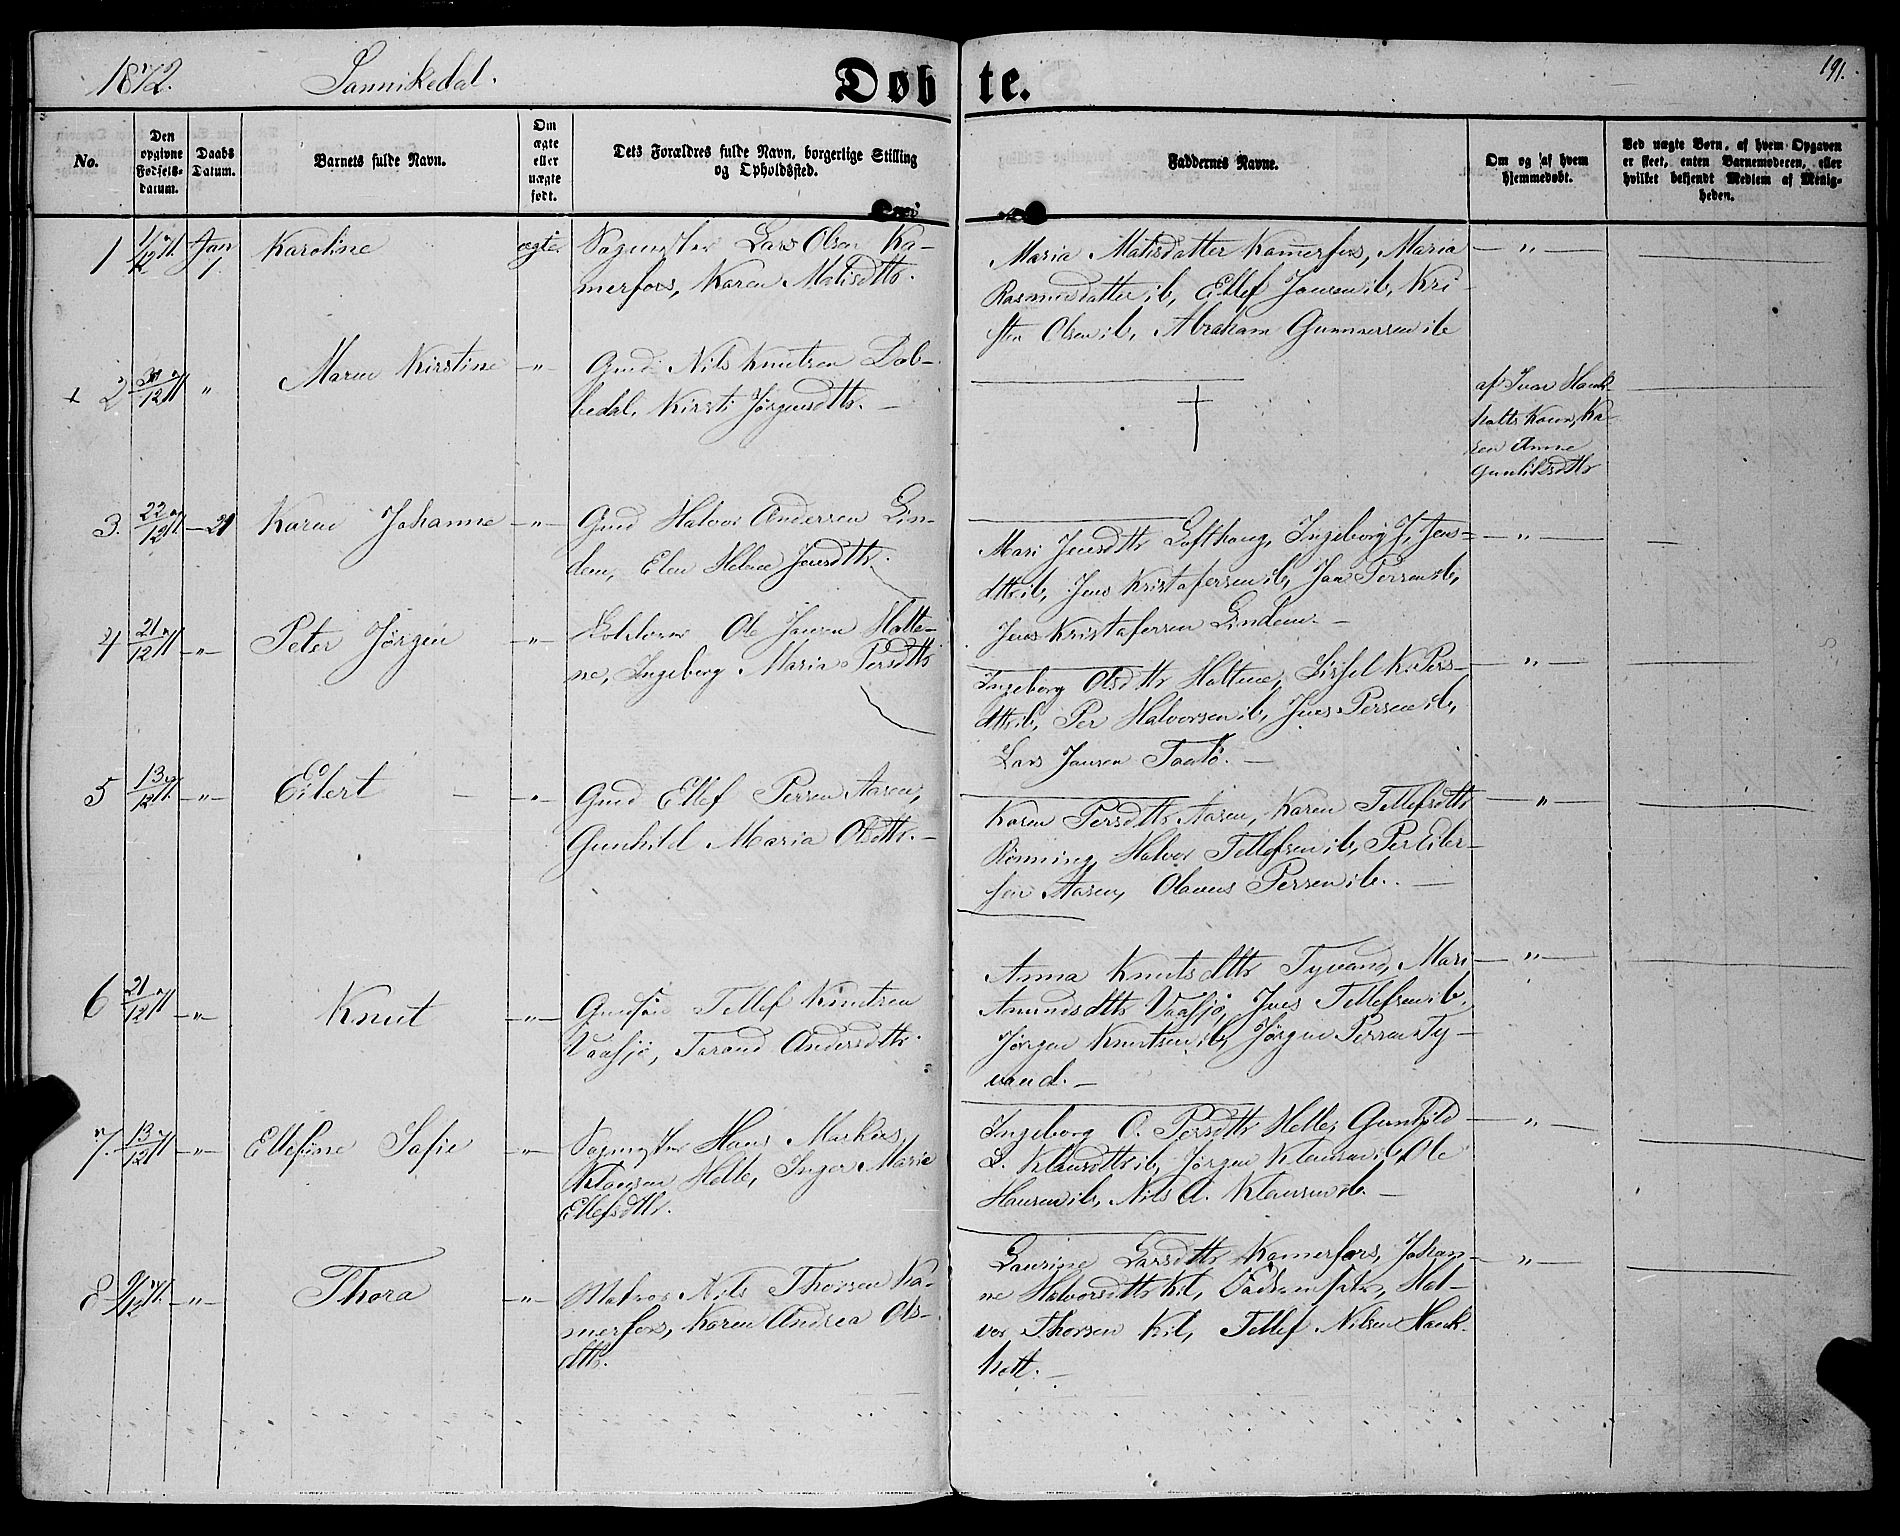 1872.
Sannikedal.
Døbte.
191.
No.
Den opgivne Fødsels-datum.
Daabs Datum.
Barnets fulde Navn.
Om ægte eller uægte født.
Dets Forældres fulde Navn, borgerlige Stilling og Opholdssted.
Faddernes Navne.
Om og af hvem hjemmedøbt.
Ved uægte Børn, af hvem Opgaven er skeet, enten Barnemoderen, eller hvilket bekjendt Medlem af Menigheden.
1 1/12 71. Jan 1. Karoline ægte Sagmester Lars Olsen Ka-
merfos, Karen Matisdttr.
Maria Matisdatter Kamerfos, Maria — " —
Rasmusdatter ib, Ellef Jansen ib, Kri-
sten Olsen ib, Abraham Gunnersen ib
+ 2 30/12 71 " Maren Kirstine — " — Gmd. Nils Knutsen Dob-
bedal, Kirsti Jørgensdttr. —
af Ivar Hauk-
holts Kone, Ka-
ren Anne
Gunliksdttr
3. 22/12 71. — 21 Karen Johanne — " — Gmd Halvor Andersen Lin-
dem, Elen Helene Jensdttr.
Mari Jensdttr Lofthaug, Ingeborg J. Jens- — " —
dttr ib, Jens Kristofersen ib, Jan Persen ib,
Jens Kristofersen Lindem. —
4 21/12 71 — " — Peter Jørgen — " — Ole Jansen Holte-
ne, Ingeborg Maria Persdttr
Ingeborg Olsdttr Holtene, Sissel K. Pers- — " —
dttr ib, Per Halvorsen ib, Jens Persen ib,
Lars Jansen Taatö. —
5 13/12 71. — " — Eilert — " — Gmd Ellef Persen Aasen,
Gunhild Maria Olsdttr. —
Karen Persdttr Aasen, Karen Tellefsdttr — " —
Rønning, Halvor Tellefsen ib, Per Eiler-
sen Aasen, Olaves Persen ib. —
6 21/12 71 — " — Knut — " — Tellef Knutsen
Vaasjø, Torand Andersdttr.
Anna Knutsdttr Tyvand, Mari — " —
Amundsdttr Vaasjø, Jens Tellefsen ib,
Jørgen Knutsen ib, Jørgen Persen Ty-
vand. —
7. 13/12 71 — " — Ellefine Sofie — " — Sagmester Hans Markus
Klausen Helle, Inger Marie
Ellefsdttr.
Ingeborg O. Persdttr Helle, Gunhild — " —
L. Klausdttr ib, Jørgen Klausen ib, Ole
Hansen ib, Nils A. Klausen ib. —
8 9/12 71. — " — Thora — " — Matros Nils Thorsen Ka-
merfos, Karen Andrea Ols-
dttr.
Laurine Larsdttr Kamerfos, Johan- — " —
ne Halvorsdttr Kil, Hal-
vor Thorsen Kil, Tellef Nilsen Hauk-
holt. —